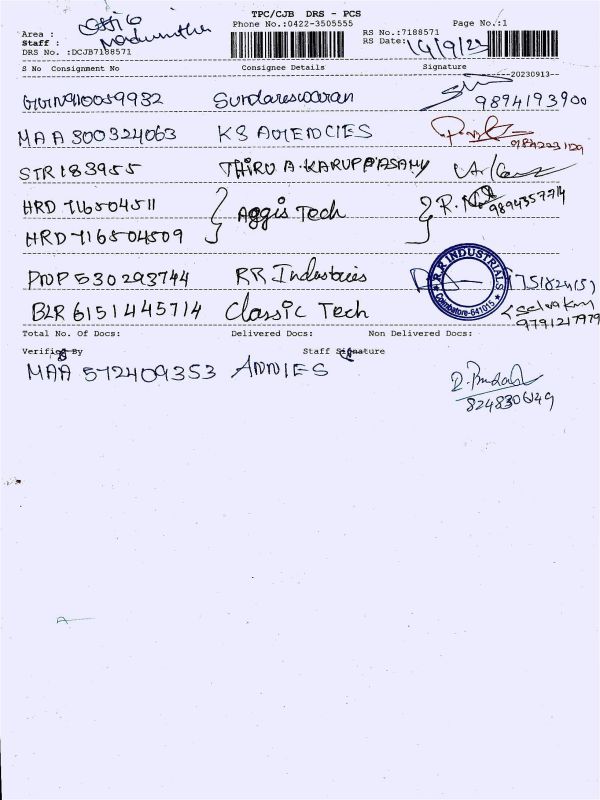 TPC/CJB DRS - PCS
Phone No.:0422-3505555
Page No.:1
Area :
Staff :
DRS No. :DCJB7188571
RS No.:7188571
RS Date:
S No Consignment No Consignee Details Signature
20230913
Sundareswaran 9894193900
MAA 300324063 KS AGENCIES
STR183955 THIRU A. KARUPPASAMY
HRD 716504511 Aggis Tech R. 9894357714
HRD 716504509
PNP 530293744 RR Industries
R.R INDUSTRIALS
Coimbatore-641015
BLR 6151445714 Classic Tech
9791217979
Total No. Of Docs: Delivered Docs: Non Delivered Docs:
Verified By Staff Signature
MAA 572409353 ANNIES
8248306149